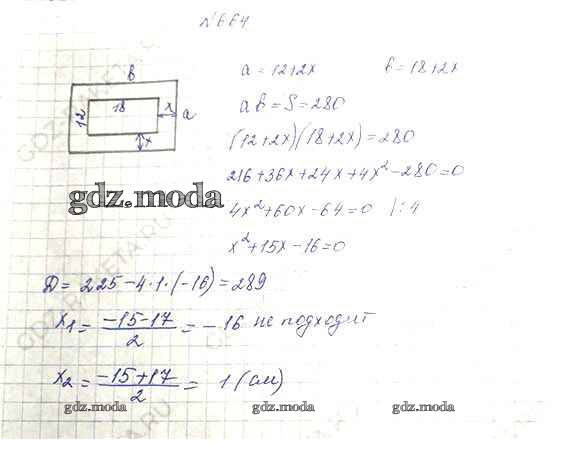 №664
a = 12+2x    b = 18+2x
b
18
x
a
12
x
ab = S = 280
(12+2x)(18+2x) = 280
216+36x+24x+4x²-280=0
gdz.moda
4x²+60x-64=0 |:4
x²+15x-16=0
D = 225-4·1·(-16) = 289
x₁ = -15-17/2 = -16 не подходит
x₂ = -15+17/2 = 1 (см)
gdz.moda gdz.moda gdz.moda